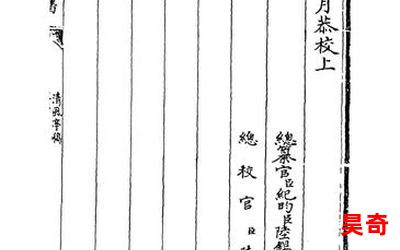 月恭校上
總纂官臣紀昀臣陸錫
總校官臣陸
清風亭稿
昊奇